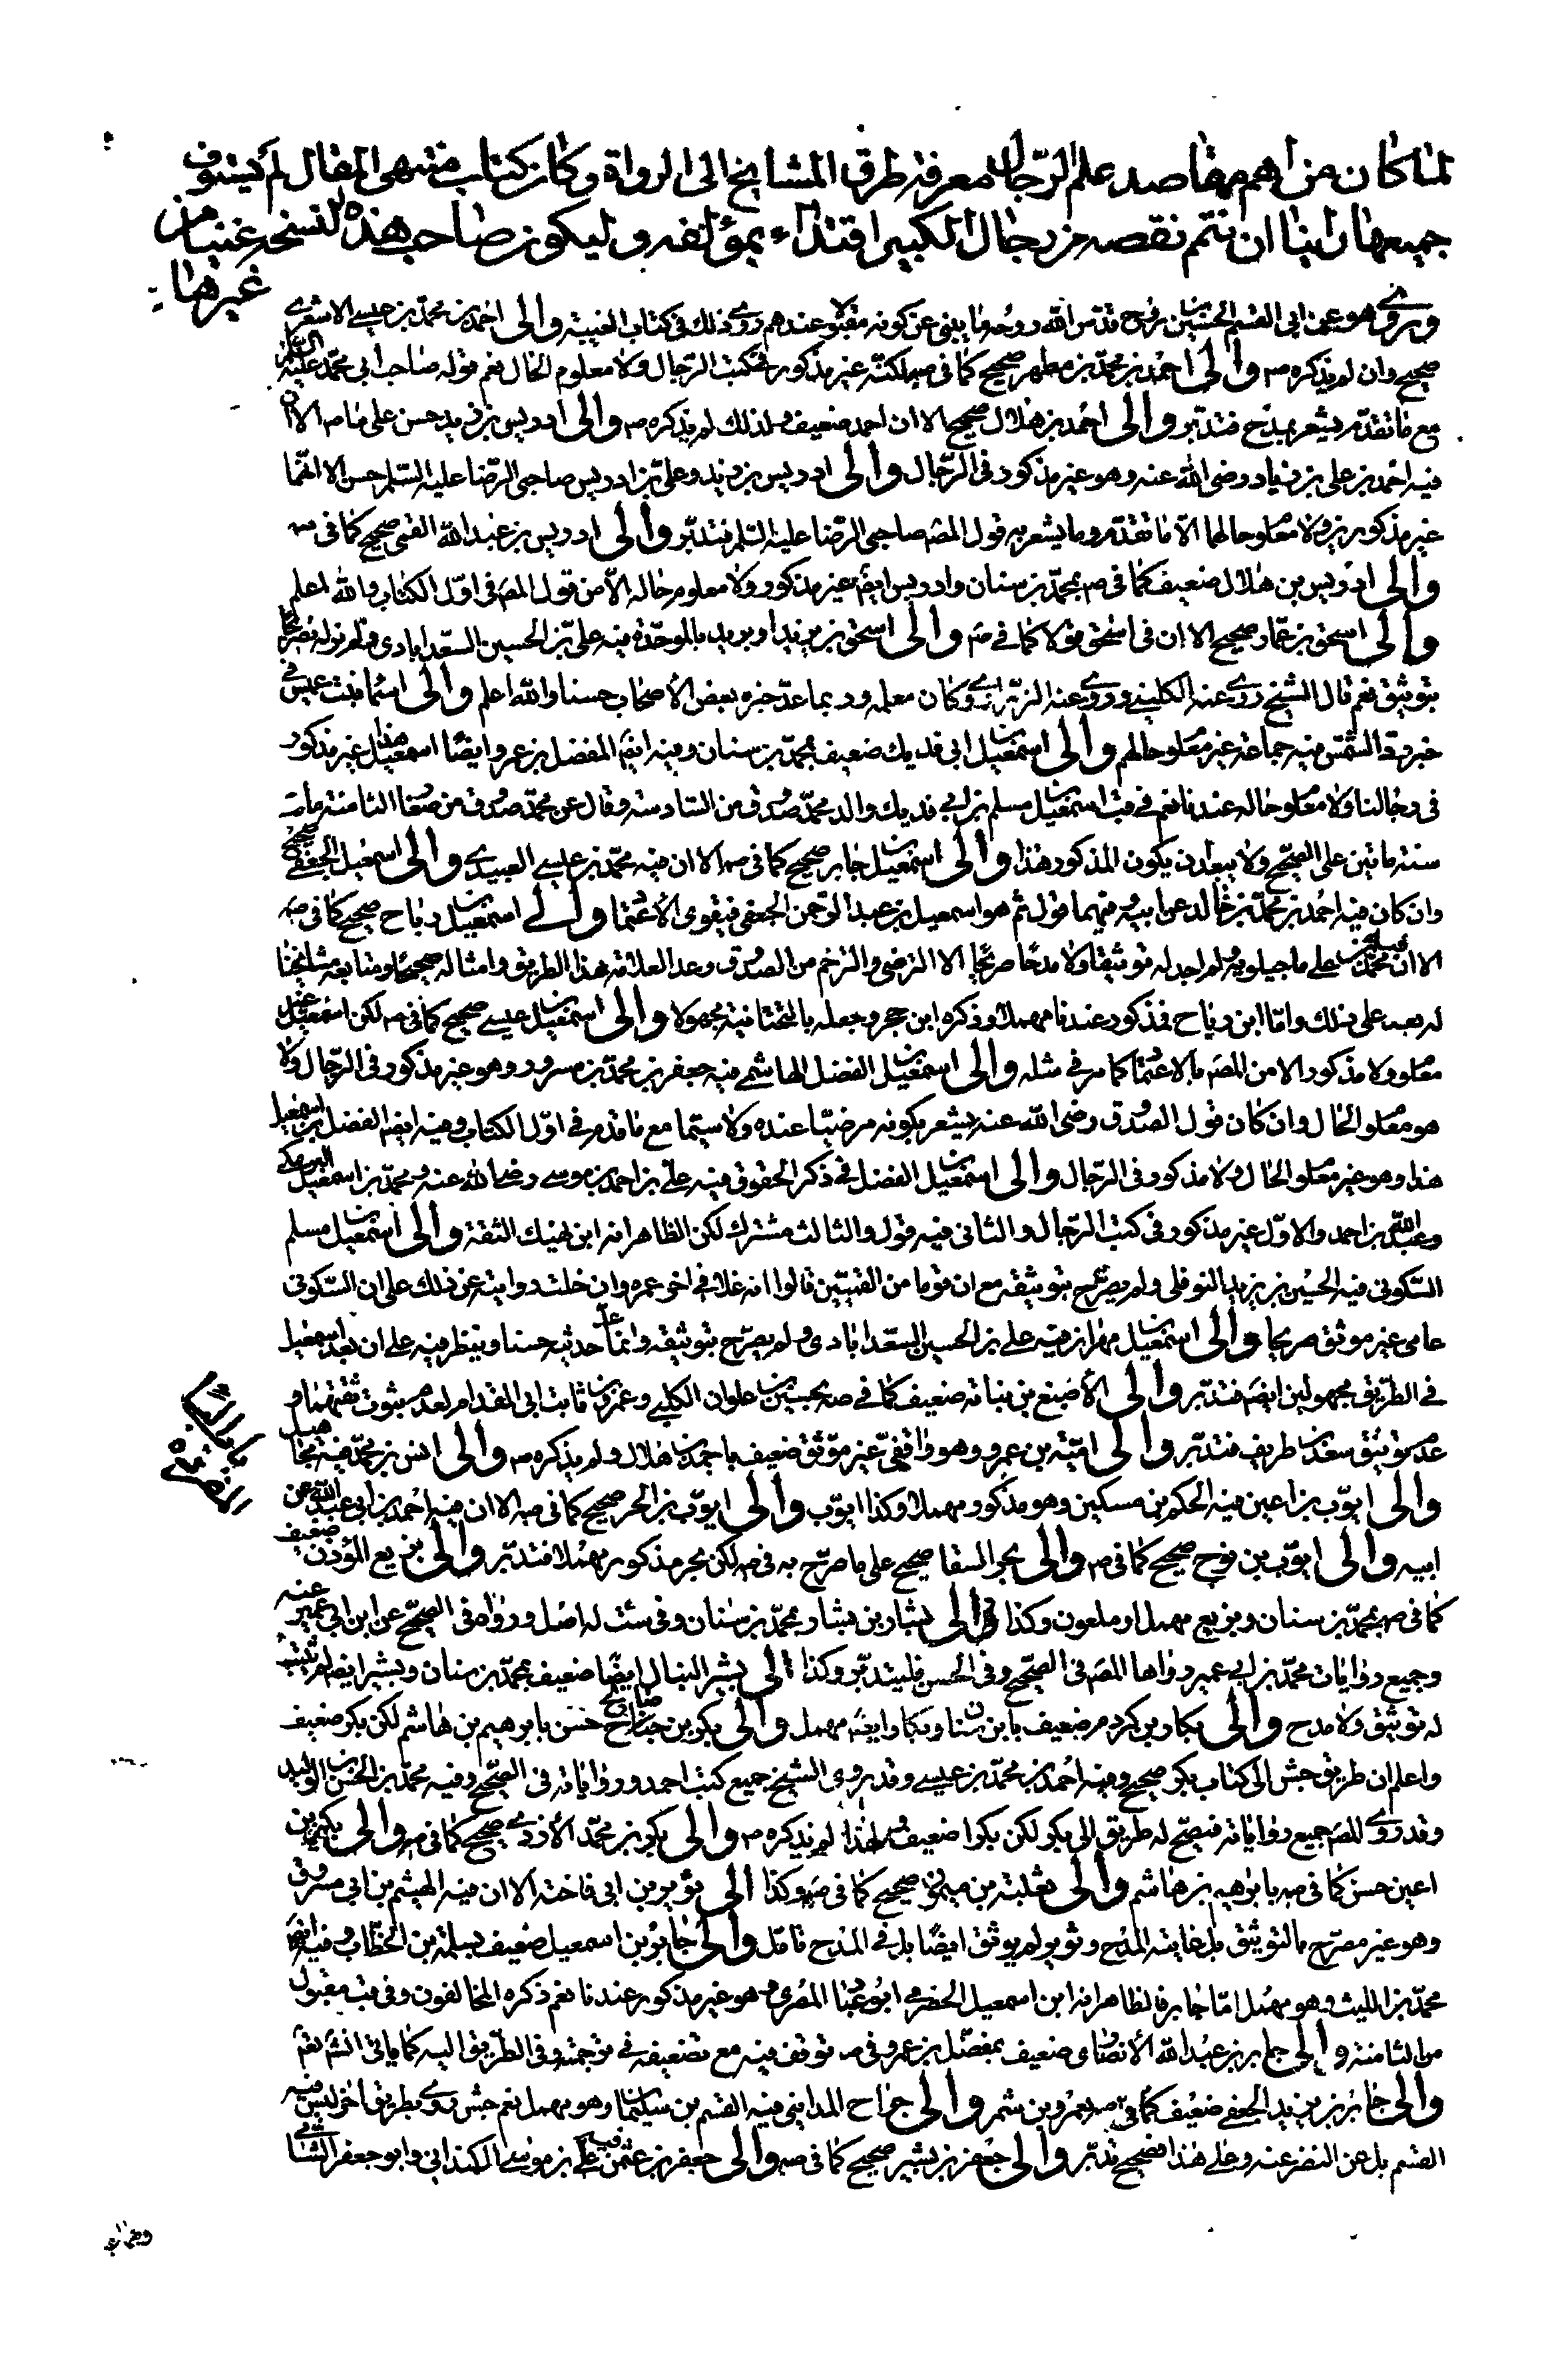 لما كان من اهم مقاصد علم الرجال معرفة طرق المشايخ الى الرواة وكان كتاب منتهى المقال لم يستوف
جميعها راينا ان نتم نقصه من رجال الكبير اقتداء بمؤلفه وليكون صاحب هذه النسخة غنيا من
غيرها
وروى هو عن ابى القسم الحسين بن روح قدس الله روحه ما ينبئ عن كونه مقبولا عندهم روى ذلك فى كتاب الغيبة والى احمد بن محمد بن عيسى الاشعرى
صحيح وان لم يذكره صه والى احمد بن محمد بن مطهر صحيح كما فى صه لكنه غير مذكور فى كتب الرجال ولا معلوم الحال نعم قوله صاحب ابى محمد عليه السلام
مع ما تقدم يشعر بمدح فتدبر والى احمد بن هلال صحيح الا ان احمد ضعيف ولذلك لم يذكره صه والى ادريس بن زيد حسن على ما صه الا ان
فيه احمد بن على بن زياد رضى الله عنه وهو غير مذكور فى الرجال والى ادريس بن زيد وعلى بن ادريس صاحبى الرضا عليه السلم حسن الا انهما
غير مذكورين ولا معلو حالهما الا ما تقدم وما يشعر به قول المصَ صاحبى الرضا عليه السلم فتدبر والى ادريس بن عبد الله القمى صحيح كما فى صه
والى ادريس بن هلال ضعيف كما فى صه بمحمد بن سنان وادريس ايضَ غير مذكور ولا معلوم حاله الا من قول المصَ فى اول الكتاب والله اعلم
والى اسحق بن عمار صحيح الا ان فى اسحق قولا كما فى صه والى اسحق بن يزيد او بريد بالموحدة فيه على بن الحسين السعدابادى ولم نر له تصريحا
بتوثيق نعم قال الشيخ روى عنه الكلينى وروى عنه الزرارى وكان معلمه وربما عد خبره بعض الأصحاب حسنا والله اعلم والى اسما بنت عميس فى
خبر رد الشمس فيه جماعة غير معلو حالهم والى اسمعيل بن ابى فديك ضعيف بمحمد بن سنان وفيه ايضَ المفضل بن عمر وايضا اسمعيل هذا غير مذكور
فى رجالنا ولا معلو حاله عندنا نعم فى قب اسمعيل بن مسلم بن ابى فديك والد محمد صدوق من السادسة وقال عن محمد صدوق من صغا الثامنة مات
سنة ماتين على الصحيح ولا يبعد ان يكون المذكور هذا والى اسمعيل بن جابر صحيح كما فى صه الا ان فيه محمد بن عيسى العبيدى والى اسمعيل الجعفى صحيح
وان كان فيه احمد بن محمد بن خالد عن ابيه وفيهما قول ثم هو اسمعيل بن عبد الرحمن الجعفى فيقوى الأعتما والى اسمعيل بن رباح صحيح كما فى صه
الا ان فيه محمد بن على ماجيلويه ولم اجد له توثيقا ولا مدحا صريحا الا الترضى والترحم من الصدوق وعد العلامة هذا الطريق وامثاله صحيحا ومتابعة مشايخنا
له بعده على ذلك واما ابن رياح فمذكور عندنا مهملا وذكره ابن حجر وجعله بالتحتانية مجهولا والى اسمعيل بن عيسى صحيح كما فى صه لكن اسمعيل غير
معلو ولا مذكور الا من المصَ بالاعتما كما مر فى مثله والى اسمعيل بن الفضل الهاشمى فيه جعفر بن محمد بن مسرور وهو غير مذكور فى الرجال ولا
هو معلو الحال وان كان قول الصدوق رضى الله عنه يشعر بكونه مرضيا عنده ولا سيما مع ما قدم فى اول الكتاب وفيه ايضَ الفضل بن اسمعيل
هذا وهو غير معلو الحال ولا مذكور فى الرجال والى اسمعيل بن الفضل فى ذكر الحقوق فيه على بن احمد بن موسى رضى الله عنه ومحمد بن اسمعيل البرمكى
وعبد الله بن احمد والاول غير مذكور فى كتب الرجال والثانى فيه قول والثالث مشترك لكن الظاهر انه ابن نهيك الثقة والى اسمعيل بن مسلم
السكونى فيه الحسين بن يزيد النوفلى ولم يصرح بتوثيقه مع ان قوما من القميين قالوا انه غلا فى اخر عمره وان خلت روايته عن ذلك على ان السكونى
عامى غير موثق صريحا والى اسمعيل بن مهران فيه على بن الحسين السعدابادى ولم يصرح بتوثيقه وانما عد حديثه حسنا وينظر فيه على ان بعد اسمعيل
فى الطريق مجهولين ايضَ فتدبر والى الأصبغ بن نباتة ضعيف كما فى صه بحسين بن علوان الكلبى وعمرو بن ثابت ابى المقدام لعدم ثبوت ثقتهما و
عدم توثيق سعد بن طريف فتدبر والى امية بن عمرو وهو واقفى غير موثق ضعيف باحمد بن هلال ولم يذكره صه والى انس بن محمد فيه مجاهيل
والى ايوب بن اعين فيه الحكم بن مسكين وهو مذكور مهملا وكذا ايوب والى ايوب بن الحر صحيح كما فى صه الا ان فيه احمد بن ابى عبد الله عن
ابيه والى ايوب بن نوح صحيح كما فى صه والى بحر السقا صحيح على ما صرح به فى صه لكن بحر مذكور مهملا فتدبر والى بزيع المؤذن ضعيف
كما فى صه بمحمد بن سنان وبزيع مهمل او ملعون وكذا والى بشار بن يشار بمحمد بن سنان وفى ست له اصل ورواه فى الصحيح عن ابن ابى عمير عنه
وجميع روايات محمد بن ابى عمير رواها المصَ فى الصحيح وفى الحسن فليتدبر وكذا الى بشير النبال ايضا ضعيف بمحمد بن سنان وبشير ايضَ لم يثبت
له توثيق ولا مدح والى بكار بن كردم ضعيف بابن سنان وبكار ايضَ مهمل والى بكر بن صالح حسن بابرهيم بن هاشم لكن بكر ضعيف
واعلم ان طريق جش الى كتاب بكر صحيح وفيه احمد بن محمد بن عيسى وقد روى الشيخ جميع كتب احمد ورواياته فى الصحيح وفيه محمد بن الحسن بن الوليد
وقد روى المصَ جميع رواياته فيصح له طريق الى بكر لكن بكرا ضعيف ولهذا لم يذكره صه والى بكر بن محمد الأزدى صحيح كما فى صه والى بكير بن
اعين حسن كما فى صه بابرهيم بن هاشم والى ثعلبة بن ميمون صحيح كما فى صه وكذا الى ثوير بن ابى فاخته الا ان فيه الهيثم بن ابى مسروق
وهو غير مصرح بالتوثيق بل غايته المدح وثوير لم يوثق ايضا بل فى المدح تامل والى جابر بن اسمعيل ضعيف بسلمة بن الخطاب وفيه ايضَ
محمد بن الليث وهو مهمل اما جابر فالظاهر انه ابن اسمعيل الحضرمى ابو عباد المصرى وهو غير مذكور عندنا نعم ذكره المخالفون وفى قب مقبول
من الثامنة والى جابر بن عبد الله الأنصارى ضعيف بمفضل بن عمر وفى صه توقف فيه مع تضعيفه فى ترجمته وفى الطريق اليه كما ياتى انشَ نعم
والى جابر بن يزيد الجعفى ضعيف كما فى صه بعمرو بن شمر والى جراح المداينى فيه القسم بن سليمان وهو مهمل نعم جش روى بطريق اخر ليس فيه
القسم بل عن النضر عنه وعلى هذا فصحيح تدبر والى جعفر بن بشير صحيح كما فى صه والى جعفر بن عثمن فيه على بن موسى الكمندانى وابو جعفر الشامى